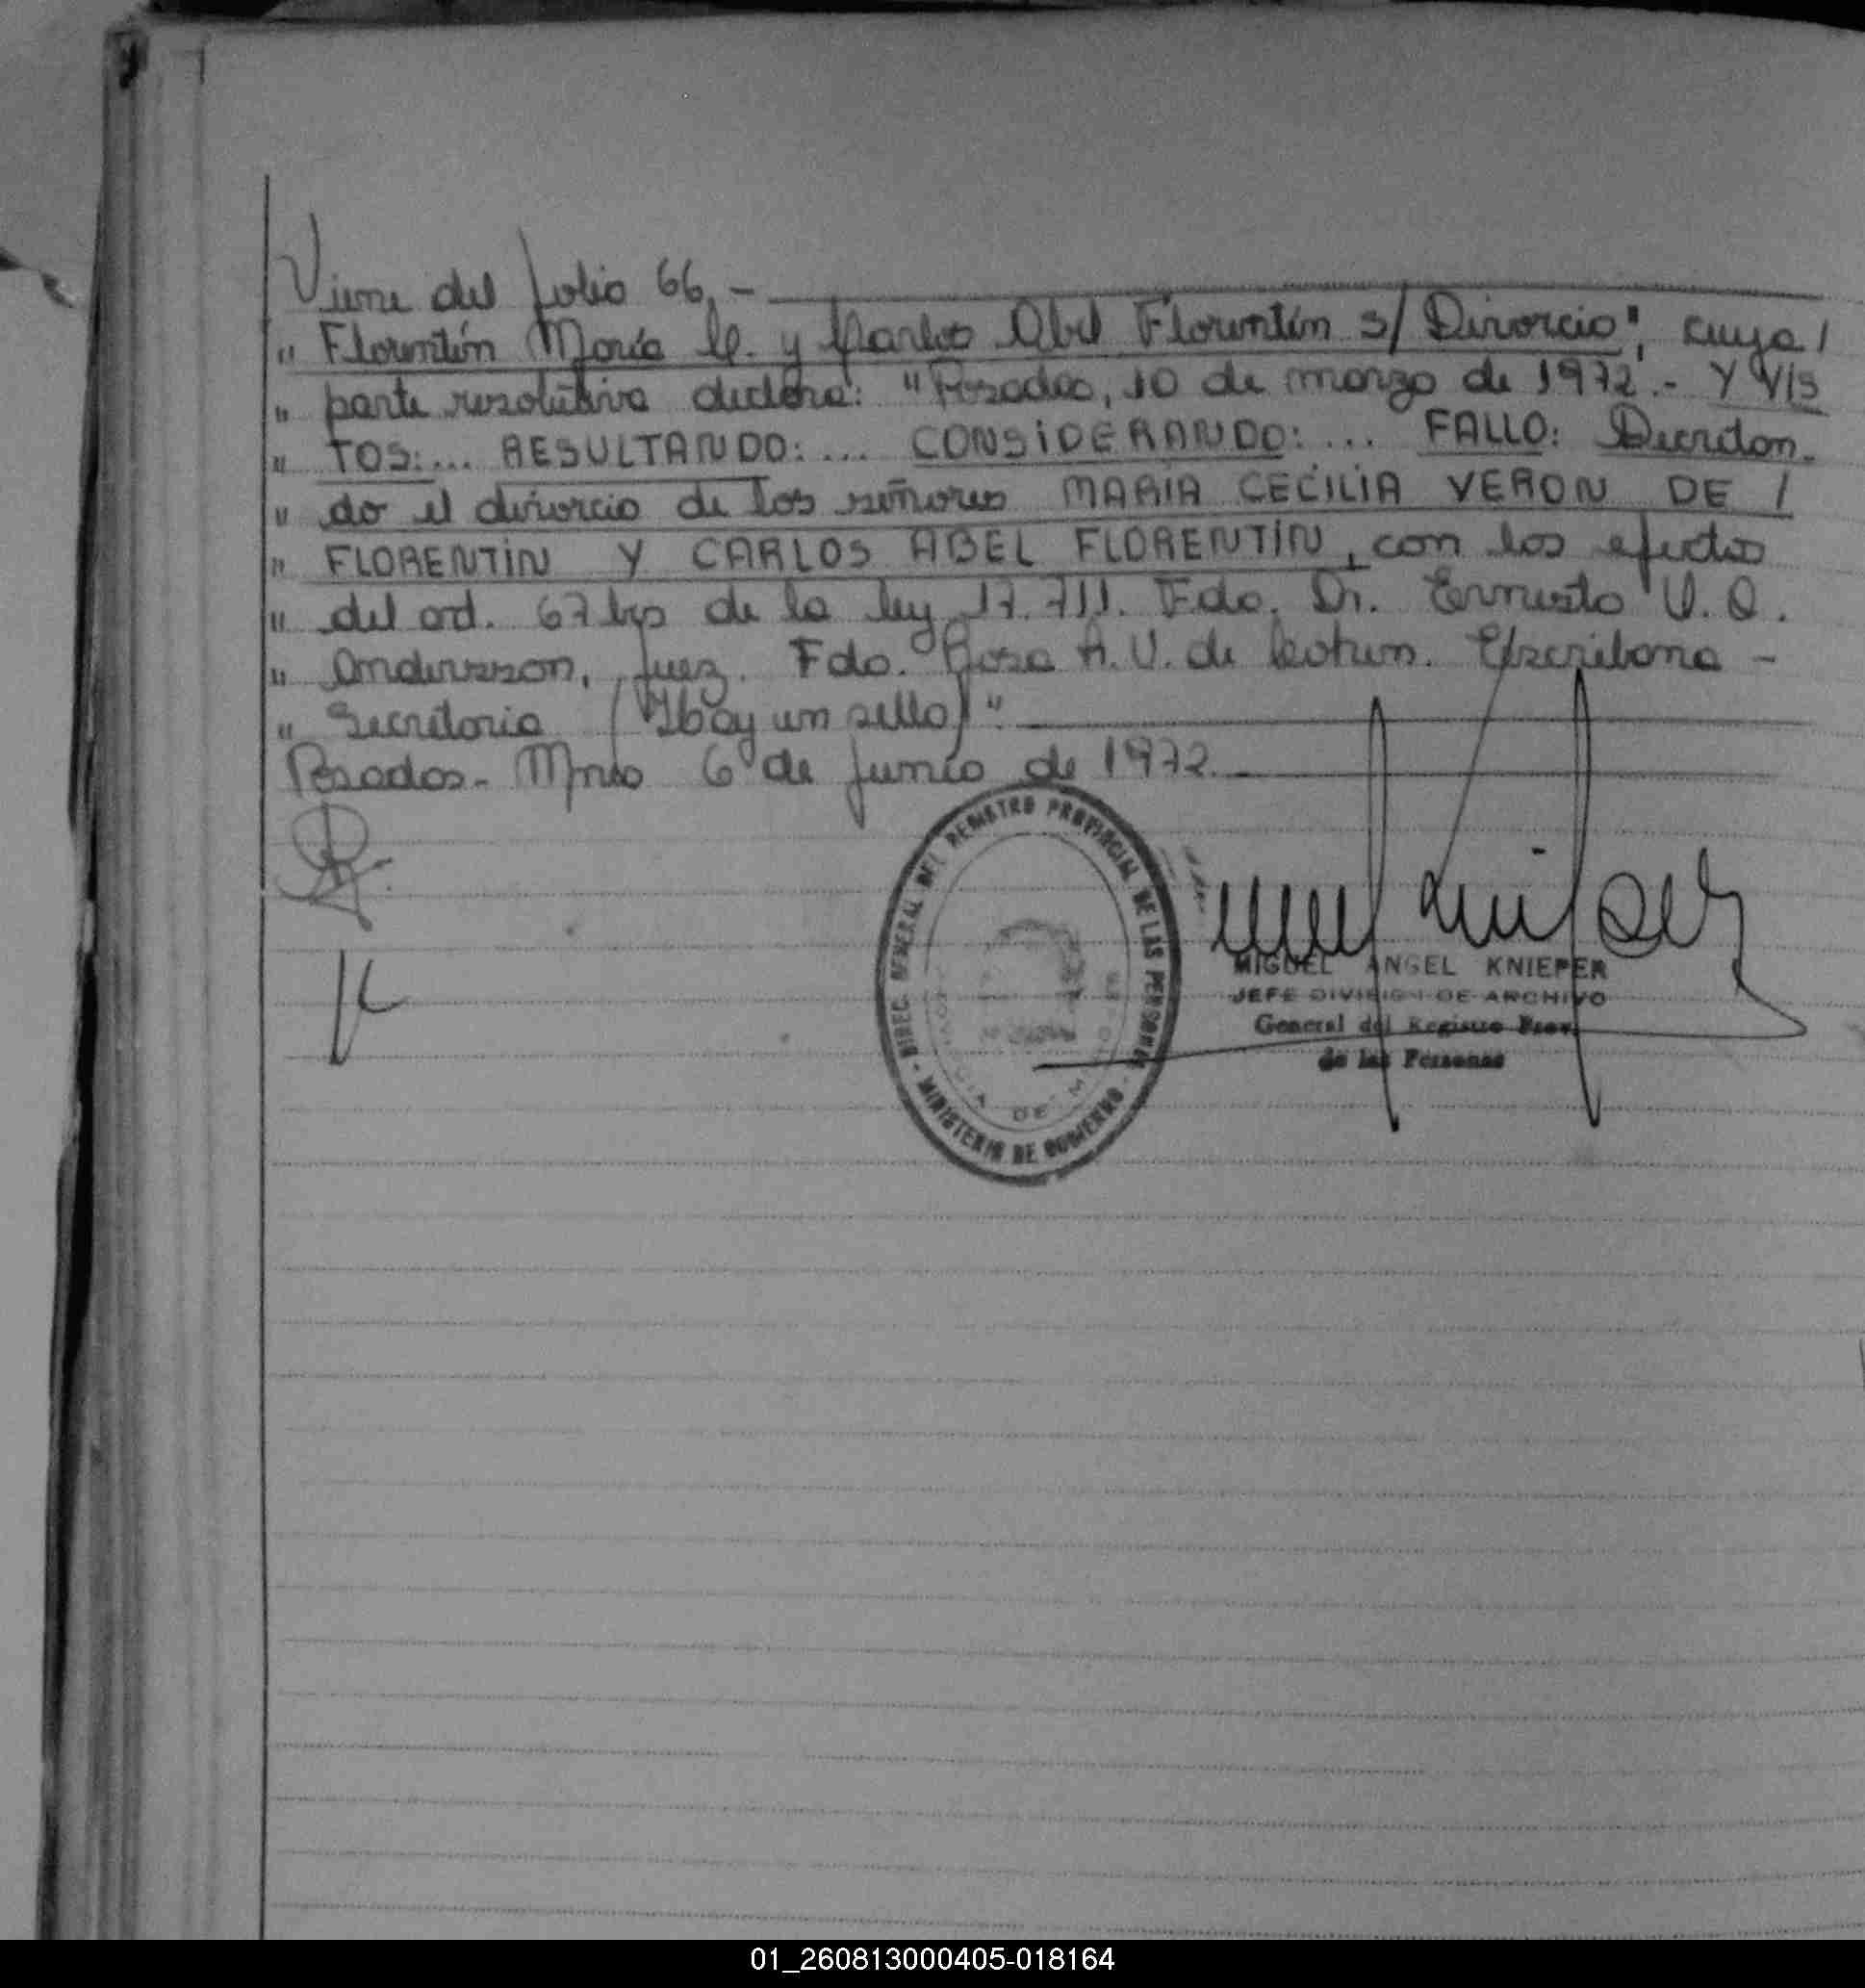 Viene del folio 66.-
" Florentín María C. y Carlos Abel Florentín s/ Divorcio", cuya /
" parte resolutiva declara: "Posadas, 10 de marzo de 1972.- Y VIS
" TOS:... RESULTANDO:... CONSIDERANDO:... FALLO: Decretan-
" do el divorcio de los señores MARIA CECILIA VERON DE /
" FLORENTIN Y CARLOS ABEL FLORENTIN, con los efectos
" del art. 67 bis de la ley 17.711. Fdo. Dr. Ernesto V. O.
" Andersson, Juez. Fdo. Rosa A. V. de Escribana -
" Secretaria (Hay un sello)"
Posadas- Mnes 6 de junio de 1972.
DIREC. GENERAL DEL REGISTRO PROVINCIAL DE LAS PERSONAS
MINISTERIO DE GOBIERNO
PROVINCIA DE MISIONES
MIGUEL ANGEL KNIEPER
JEFE DIVISION DE ARCHIVO
General del Registro Prov.
de las Personas
01_260813000405-018164